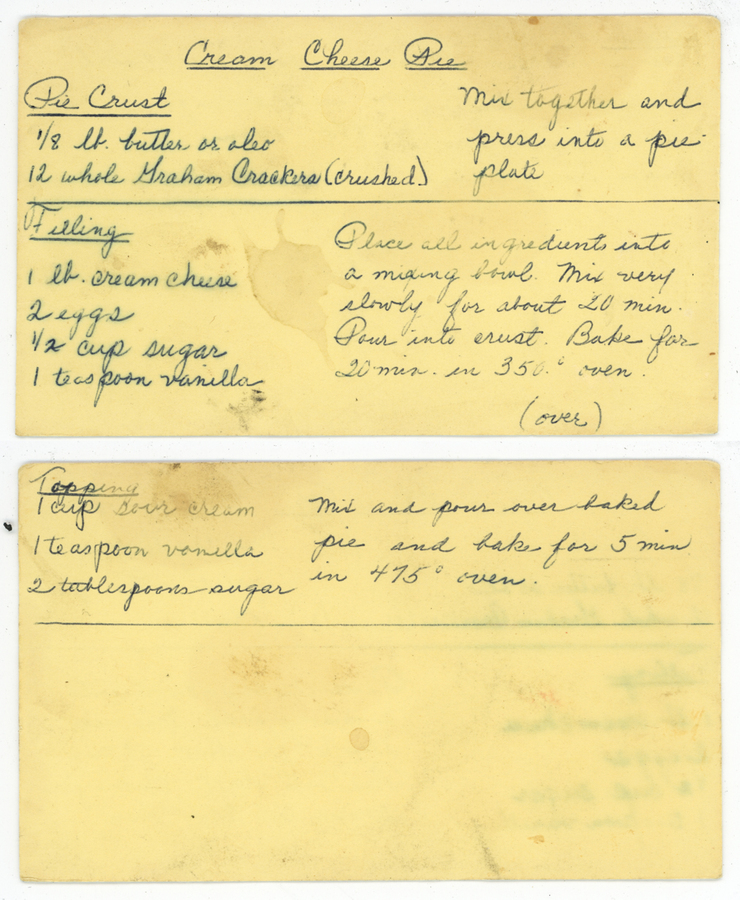 Cream Cheese Pie
Pie Crust
1/8 lb. butter or oleo
12 whole Graham Crackers (crushed.)
Mix together and
press into a pie
plate
Filling
1 lb. cream cheese
2 eggs
1/2 cup sugar
1 teaspoon vanilla
Place all ingredients into
a mixing bowl. Mix very
slowly for about 20 min.
Pour into crust. Bake for
20 min. in 350.° oven.
(over)
Topping
1 cup sour cream
1 teaspoon vanilla
2 tablespoons sugar
Mix and pour over baked
pie and bake for 5 min
in 475° oven.